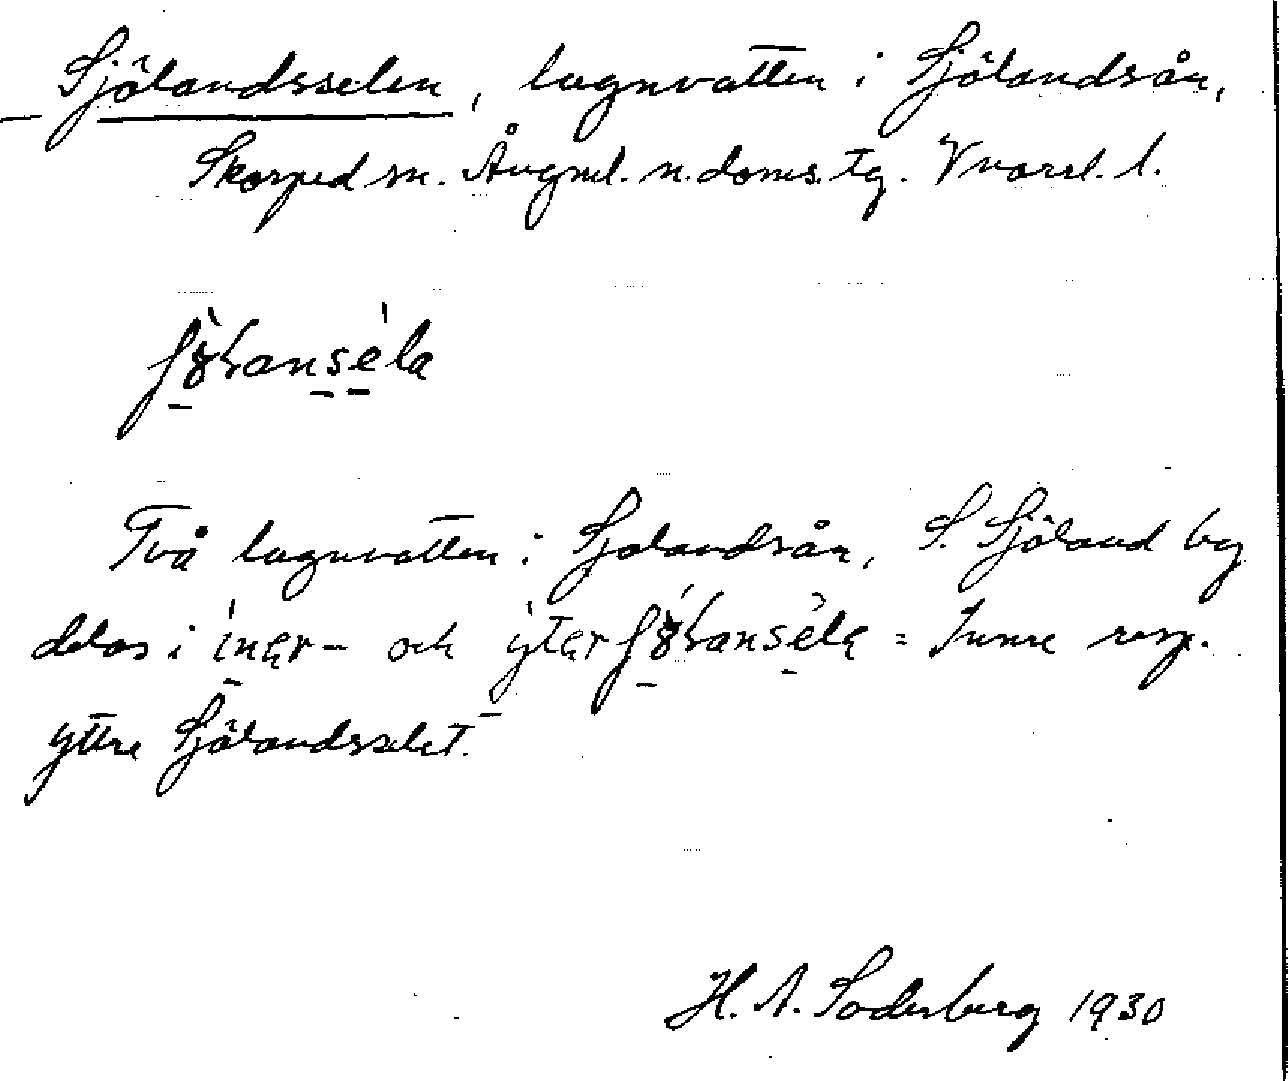 Sjölandsselen, lugnvatten i Sjölandsån,
Skorped sn. Ångml. n. doms. tg. Vnorrl. l.
Två lugnvatten i Sjolandsån, S. Sjöland by
delas i och = Inre resp.
yttre Sjölandsselet.
H. A. Söderberg 1930